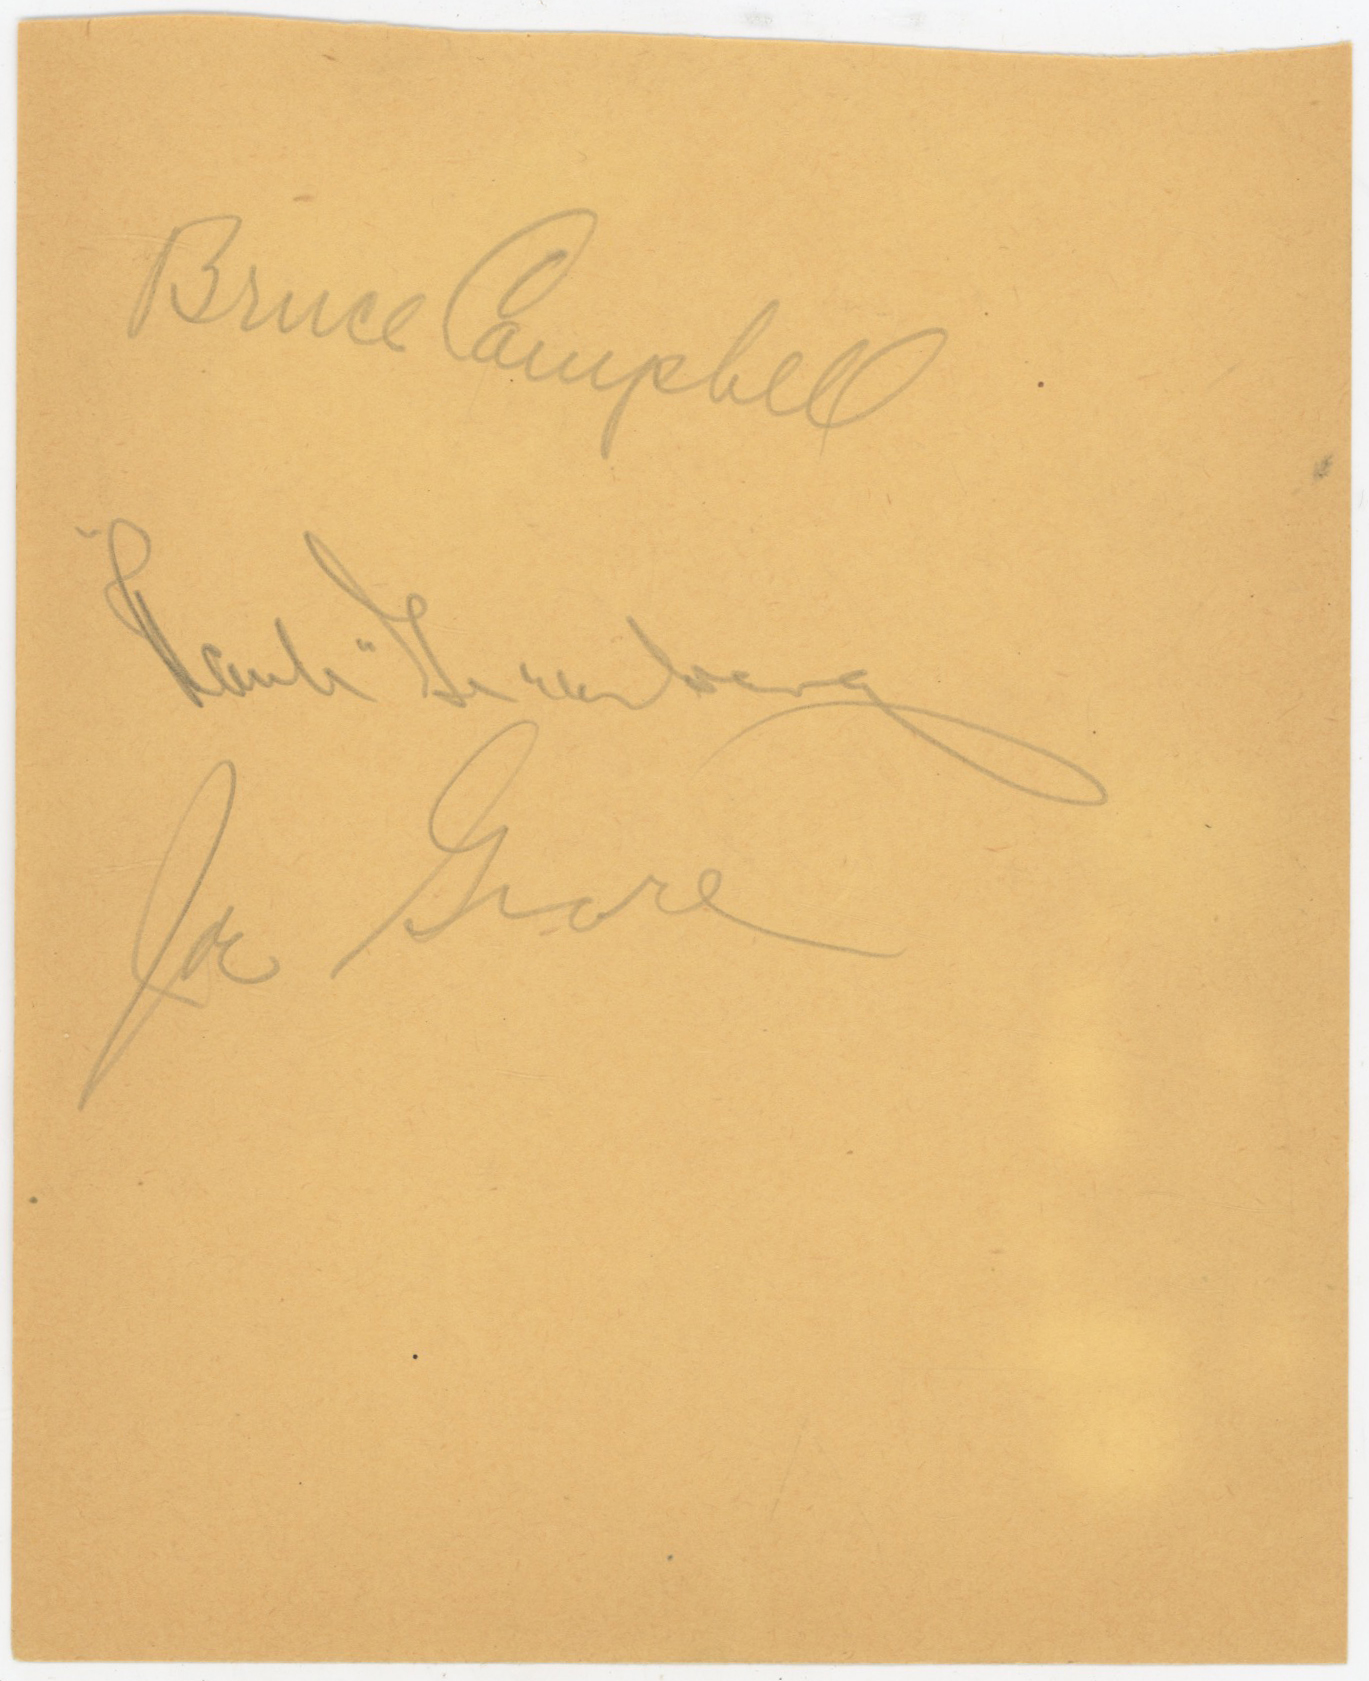 Bruce Campbell
"Hank" Greenberg
Joe Grace